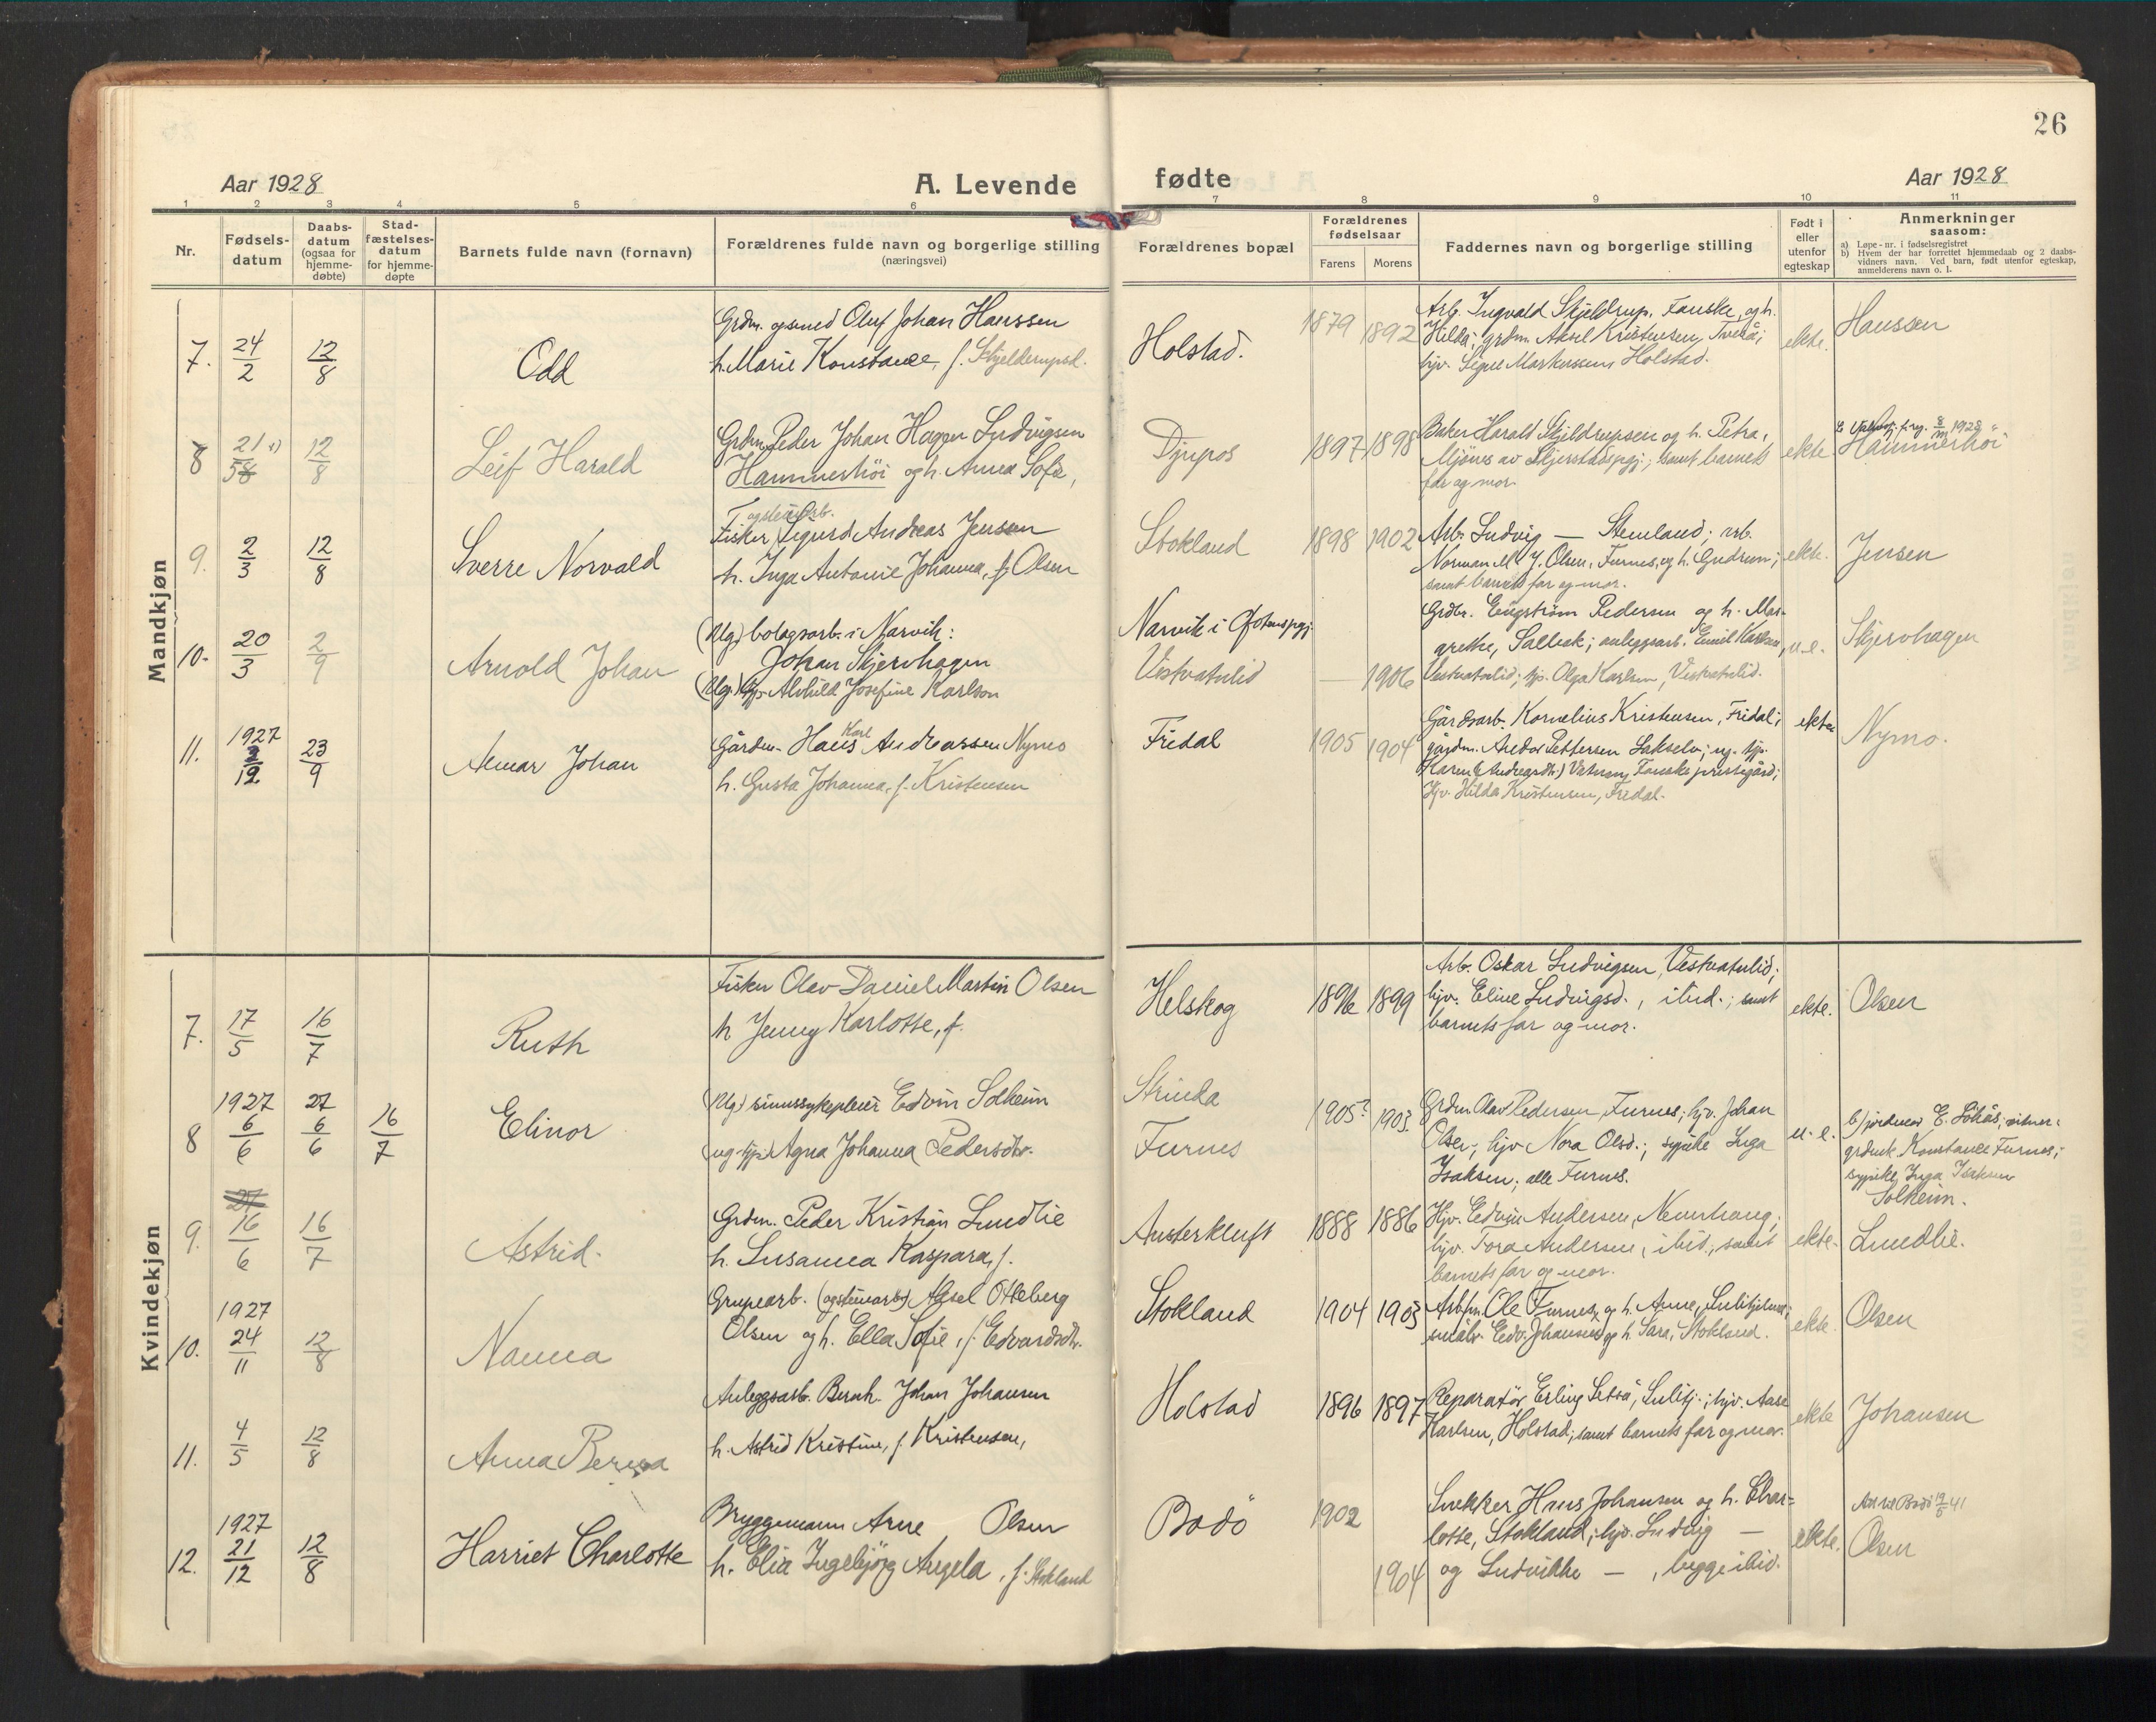 26
Aar 1928 A. Levende fødte Aar 1928
1 2 3 4 5 6 7 8 9 10 11
Nr.
Fødsels-
datum
Daabs-
datum
(ogsaa for
hjemme-
døbte)
Stad-
fæstelses-
datum
for hjemme-
døpte
Barnets fulde navn (fornavn)
Forældrenes fulde navn og borgerlige stilling
(næringsvei)
Forældrenes bopæl
Forældrenes
fødselsaar
Farens Morens
Faddernes navn og borgerlige stilling
Født i
eller
utenfor
egteskap
Anmerkninger
saasom:
a) Løpe-nr. i fødselsregistret
b) Hvem der har forrettet hjemmedaab og 2 daabs-
vidners navn. Ved barn, født utenfor egteskap,
anmelderens navn o. l.
Mandkjøn
7. 24/2 12/8 Odd
Grdm. og smed Oluf Johan Hanssen
h. Marie Konstance, f. Skjelderupsd.
Holstad. 1879 1892
Arb. Ingvald Skjeldrup, Fauske, og h.
Hilda; grdm. Aksel Kristensen, Tverå;
hjv. Signe Markussen, Holstad.
ekte. Hanssen
8 21/5 12/8 Leif Harald
Grdm. Peder Johan Hagen Ludvigsen
Hammerhöi og h. Anna Sofie,
Djupos 1897 1898
Baker Harald Skjeldrupsen og h. Petra,
Mjönes av Skjerstad pgj.; samt barnets
far og mor.
ekte 1928
Hammerhöi
9. 2/3 12/8 Sverre Norvald
og stenarb.
Fisker Sigurd Andreas Jensen
h. Inga Antonie Johanna, f. Olsen
Stokland 1898 1902
Arb. Ludvig — Stemland; arb.
Norman M. J. Olsen, Furnes, og h. Gudrun;
samt barnets far og mor.
ekte. Jensen
10. 20/3 2/9 Arnold Johan
(Ug.) bolagsarb. i Narvik:
Johan Skjervhagen
(Ug.) tjp. Alvhild Josefine Karlson
Narvik i Ofotens pgj.
Vestvatnlid — 1906
Grdbr. Engström Pedersen og h. Mar-
grethe, Salleak; anleggsarb. Emil Karlsen,
Vestvatnlid; tjp. Olga Karlsen, Vestvatnlid.
u.e. Skjervhagen
11. 1927 2/12 23/9 Almar Johan
Gårdm. Hans Karl Andreassen Nymo
h. Gusta Johanna, f. Kristensen
Fridal 1905 1904
Gårdsarb. Kornelius Kristensen, Fridal;
gårdm. Andor Pettersen Lakselv; ug. tjp.
Karen (Andreasdtr.) Vatnan, Fauske prestegård;
Hjv. Hilda Kristensen, Fridal.
ekte Nymo.
Kvindekjøn
7. 17/5 16/7 Ruth
Fisker Olav Daniel Martin Olsen
h Jenny Karlotte, f.
Helskog 1896 1899
Arb. Oskar Ludvigsen, Vestvatnlid;
hjv. Eline Ludvigsd., ibid.; samt
barnets far og mor.
ekte. Olsen
8 1927 6/6 27 6/6 16/7 Elinor
(Ug.) sinnssykepleier Edvin Solheim
(ug. tjp.) Agna Johanna Pedersdtr.
Strinda
Furnes 1905? 1903
Grdm. Olav Pedersen, Furnes; hjv. Johan
Olsen; hjv Nora Olsd.; sypike Inga
Isaksen; alle Furnes.
u. e. b) jordmor E. Lökås; vitner:
Konstance Furnes;
sypike Inga Isaksen
Solheim.
9. 16/6 16/7 Astrid.
Grdm. Peder Kristian Lundlie
h. Susanna Kaspara, f.
Austerkluft 1888 1886
Hjv. Edvin Andersen, Neverhaug;
hjv. Tora Andersen, ibid., samt
barnets far og mor.
ekte. Lundlie.
10. 1927 24/11 12/8 Nanna
Grupearb. (og stenarb.) Aksel Otteberg
Olsen og h. Ella Sofie, f. Edvardsdtr.
Stokland 1904 1903
Arb.fm. Ole Furnes, og h. Anne, Sulitjelma;
småbr. Edv. Johansen og h. Sara, Stokland.
ekte. Olsen
11. 4/5 12/8 Anna Berna
Anleggsarb. Bernh. Johan Johansen
h. Astrid Kristine, f. Kristensen,
Holstad 1896 1897
Reparatör Erling Setså, Sulitj.; hjv. Aase
Karlsen, Holstad; samt barnets far og mor.
ekte Johansen
12. 1927 21/12 12/8 Harriet Charlotte
Bryggemann Arne Olsen
h. Elia Ingebjörg Angela, f. Stokland
Bodö 1902 1904
Snekker Hans Johansen og h. Char=
lotte, Stokland; hjv. Ludvig —
og Ludvikke —, begge ibid.
ekte. Att til Bodö 19/5 41
Olsen